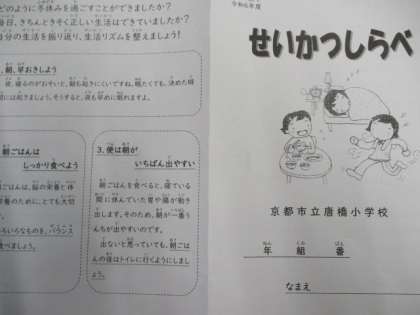 どのように冬休みを過ごすことができましたか?
毎日、きちんときそく正しい生活はできていましたか?
自分の生活を振り返り、生活リズムを整えましょう!
朝、早おきしよう
夜、寝るのがおそいと、朝も起きにくいですね。眠たくても、決めた時
間には起きましょう。そうすると、夜も早めに眠れますよ。
朝ごはんは
しっかり食べよう
朝ごはんは、脳の栄養と体
栄養のために、とても大切
いろいろなものを、バランス
く食べましょう。
3.便は朝が
いちばん出やすい
朝ごはんを食べると、寝ている
間に休んでいた胃や腸が動き
出します。そのため、朝が一番う
んちが出やすいのです。
出ないと思っていても、朝ごは
んの後はトイレに行くようにしましょ
う。
令和6年度
せいかつしらべ
京都市立唐橋小学校
年 組 番
なまえ